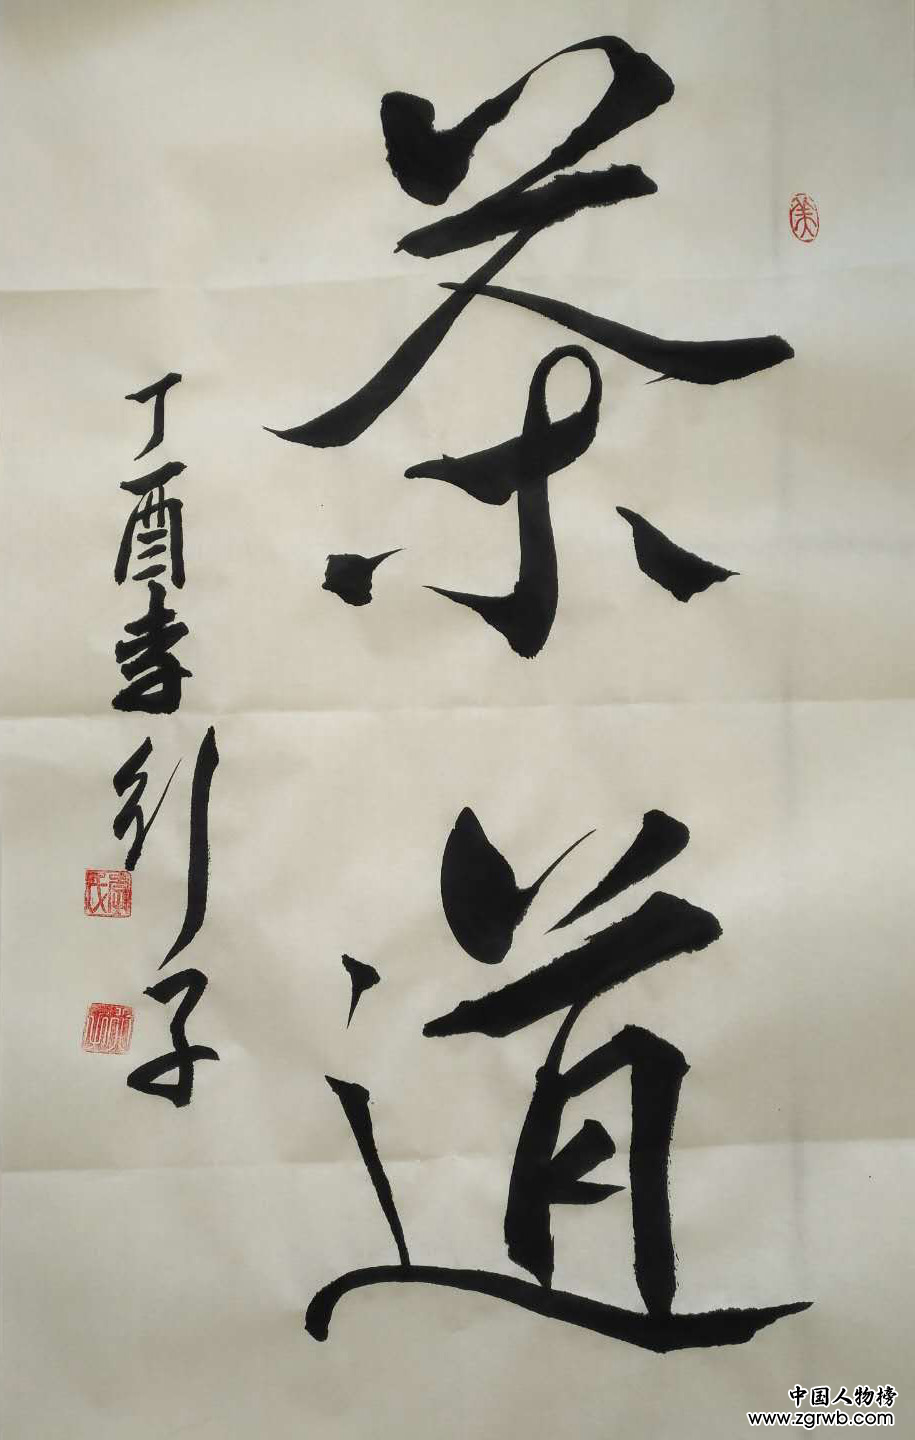 茶道
丁酉李行子
中国人物榜
www.zgrwb.com